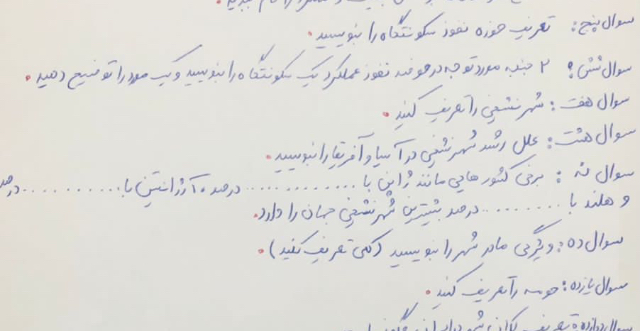 سوال پنج: تعریف حوزه نفوذ سکونتگاه را بنویسید.
سوال شش: ۲ جنبه مورد توجه در حوزه نفوذ عملکرد یک سکونتگاه را بنویسید و یک مورد را توضیح دهید.
سوال هفت: شهرنشینی را تعریف کنید.
سوال هشت: علل رشد شهرنشینی در آسیا و آفریقا را بنویسید.
سوال نه: برخی کشور هایی مانند ژاپن با ............ درصد، آرژانتین با ............ درصد
و هلند با ........ درصد بیشترین شهرنشینی جهان را دارد.
سوال ده: ویژگی مادر شهر را بنویسید (کمی تعریف کنید).
سوال یازده: حومه را تعریف کنید.
سوال دوازده: